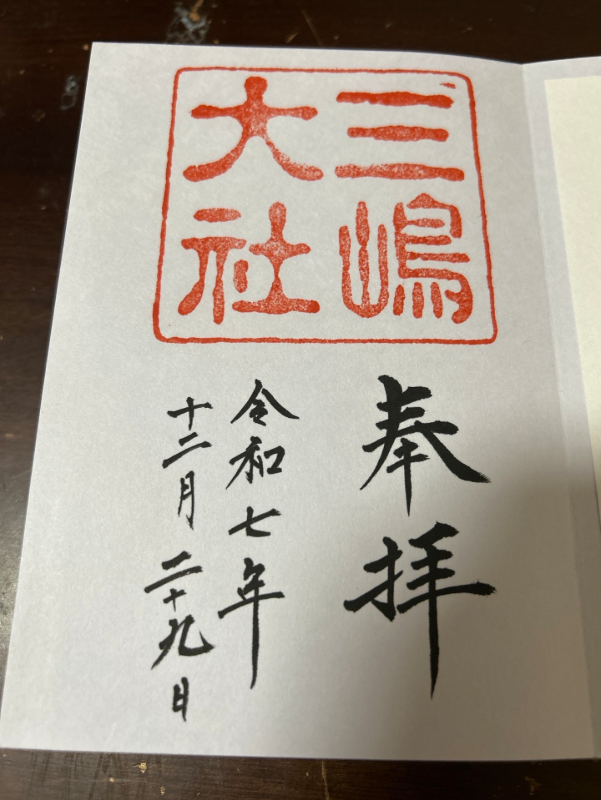 三嶋
大社
奉拝
令和七年
十二月二十九日